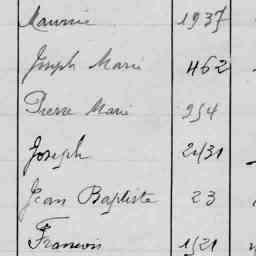 Maurice 1937
Joseph Marie 462
Pierre Marie 954
Joseph 2431
Jean Baptiste 23
Francois 1521